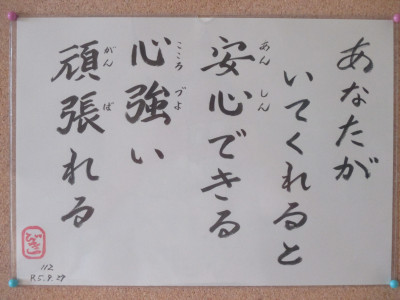 あなたが
いてくれると
安心できる
あんしん
心強い
こころづよ
頑張れる
がんば
112
R5.9.29